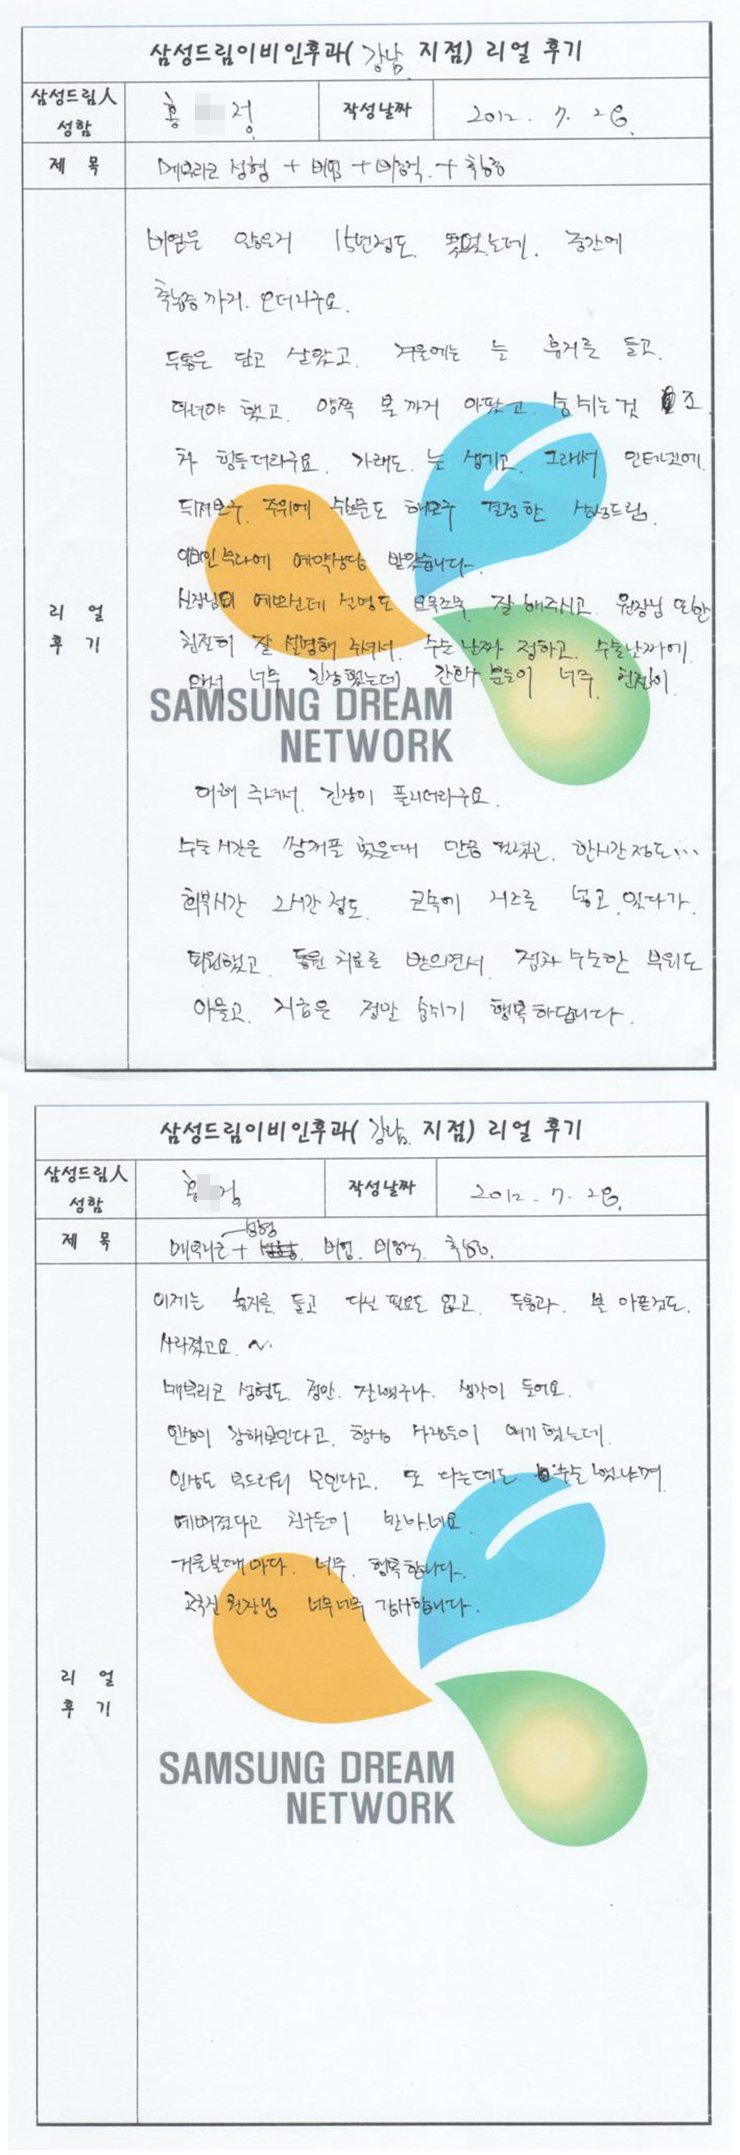 삼성드림이비인후과( 강남 지점) 리얼 후기
삼성드림人 성함
홍 정
작성날짜
2012. 7. 28.
제 목
메부리코 성형 + 비염 + 비중격 + 축농증
비염은 앓은지 15년정도 됐었는데. 중간에
축농증까지. 오더라구요.
두통은 달고 살았고. 겨울에는 늘 휴지를 들고.
다녀야 했고. 양쪽 볼까지 아팠고. 숨쉬는것 조
차 힘들더라구요. 가래도. 늘 생기고. 그래서 인터넷에
뒤져보구. 주위에 수소문도 해보구 결정한 삼성드림.
이비인후과에 예약상담 받았습니다.
실장님이 예쁘신데 설명도 조목조목 잘 해주시고. 원장님 또한
친절히 잘 설명해 주셔서. 수술 날짜 정하고. 수술날짜에.
와서 너무 긴장했는데 간호사 분들이 너무. 친절히.
SAMSUNG DREAM
NETWORK
대해 주셔서. 긴장이 풀리더라구요.
수술시간은 쌍꺼풀 했을때 만큼 편했고. 한시간 정도...
회복시간 2시간 정도. 코속에 거즈를 넣고. 있다가.
퇴원했고. 통원 치료를 받으면서. 점차 수술한 부위도
아물고. 지금은 정말 숨쉬기 행복하답니다.
삼성드림이비인후과( 강남 지점) 리얼 후기
삼성드림人 성함
홍 정
작성날짜
2012. 7. 28.
제 목
성형
메부리코 + 비염. 비중격. 축농증.
이제는 휴지를 들고 다닐 필요도 없고. 두통과. 볼 아픈것도.
사라졌고요. ~.
메부리코 성형도. 정말. 잘했구나. 생각이 들어요.
인상이 강해보인다고. 항상 사람들이 얘기했는데.
인상도 부드러워 보인다고. 또 다른데도 수술 했냐며
예뻐졌다고 친구들이 난리네요
거울볼때마다. 너무. 행복합니다.
원장님 너무너무 감사합니다.
리 얼
후 기
SAMSUNG DREAM
NETWORK